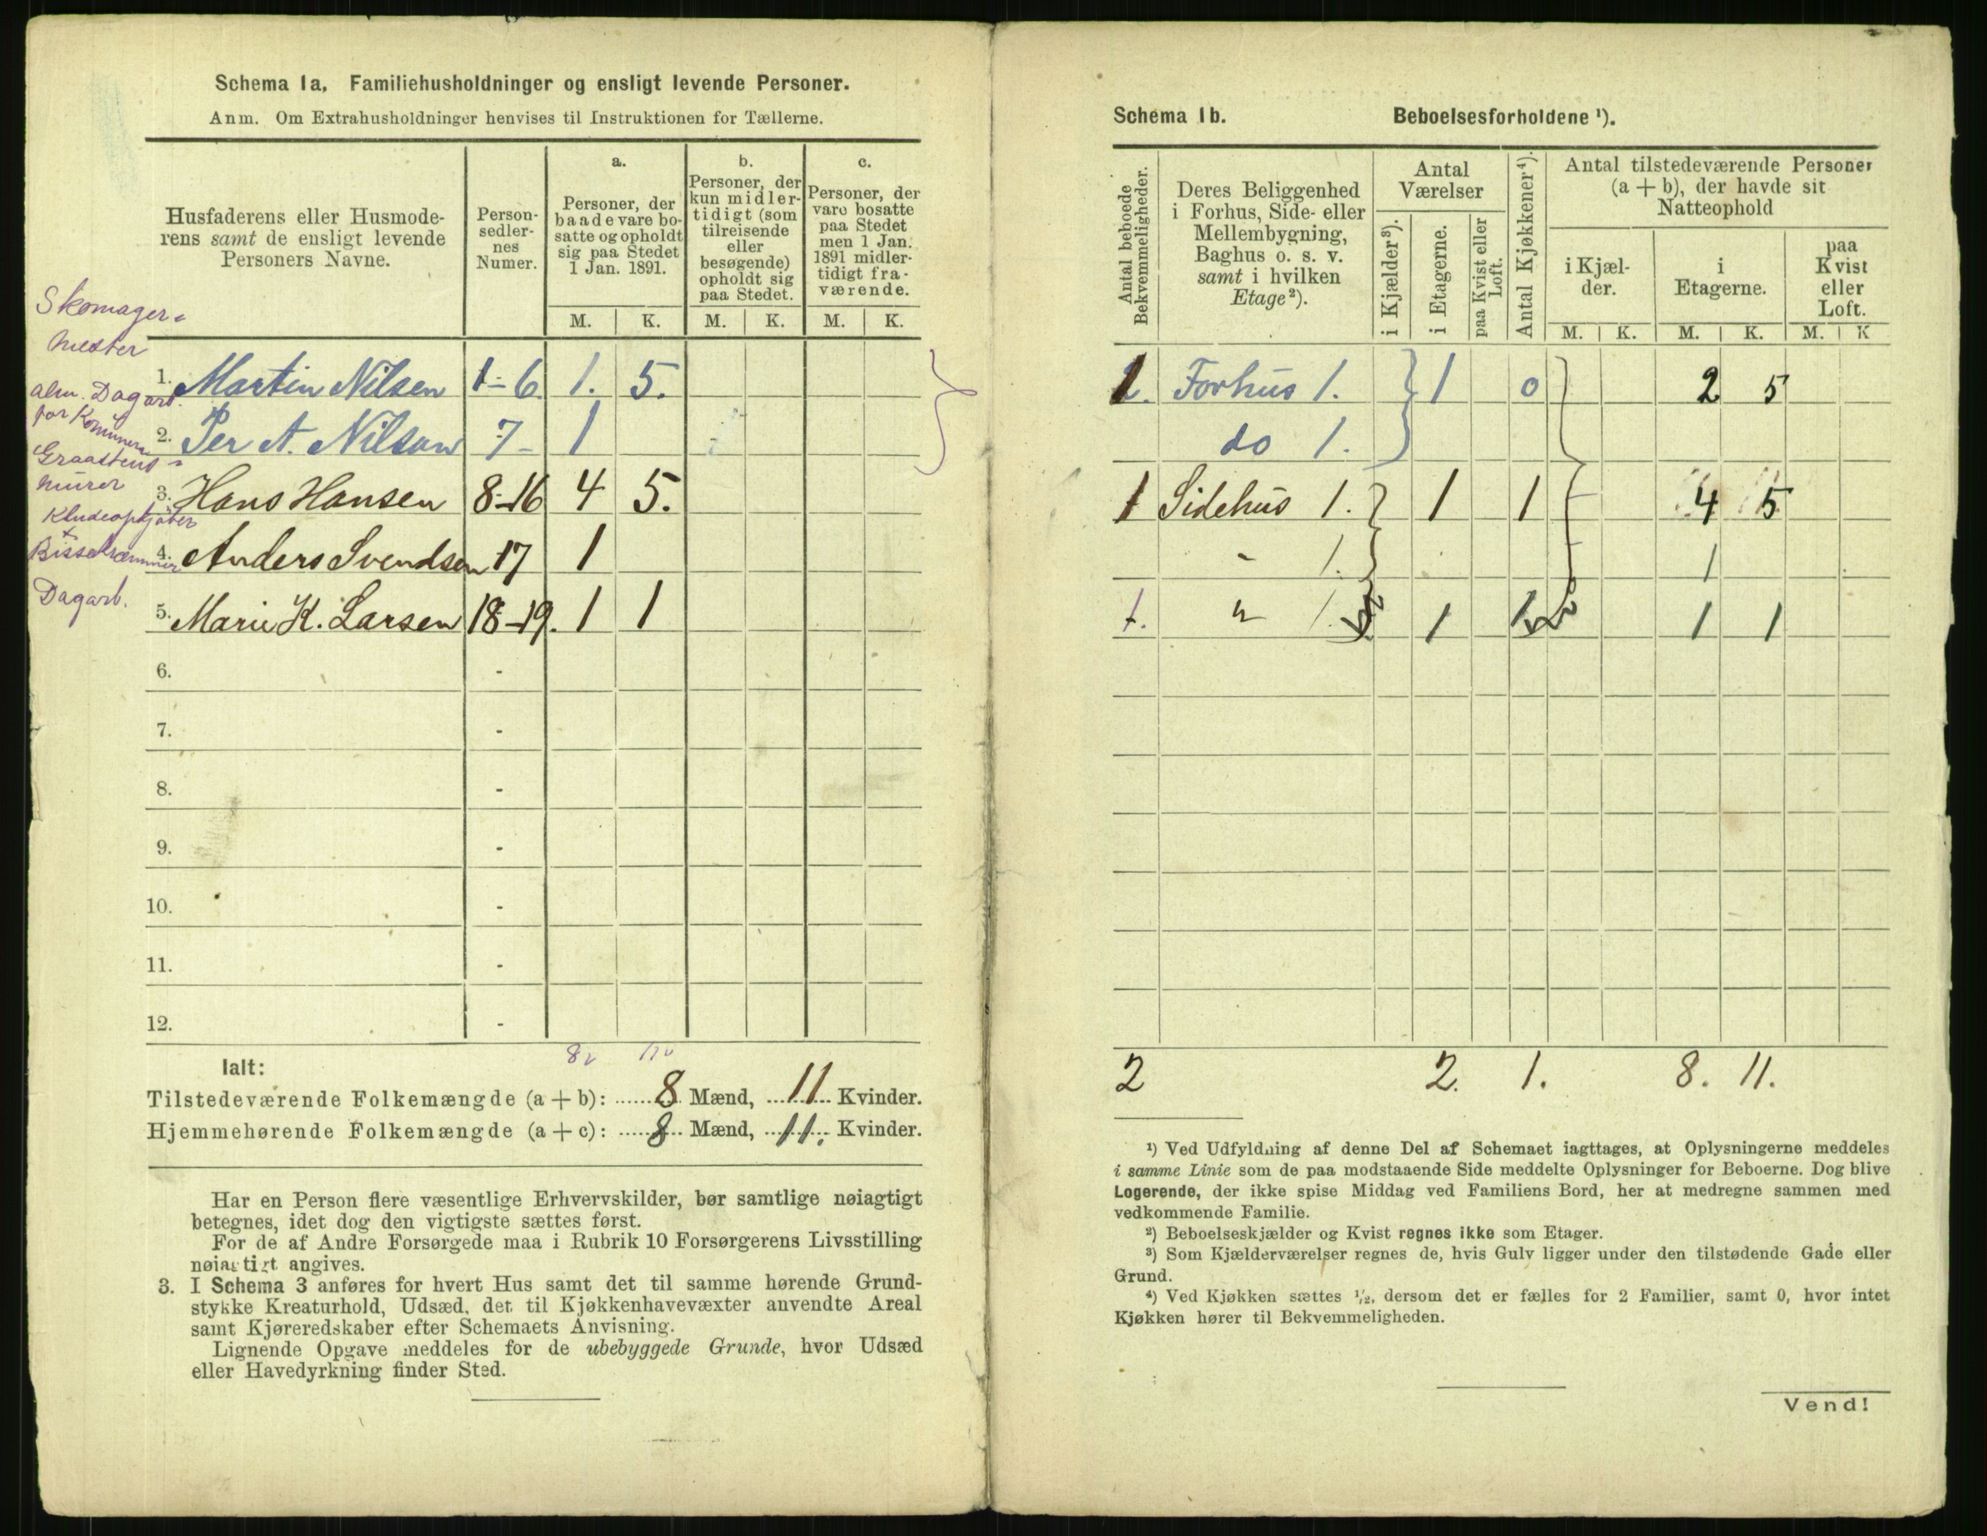 Schema 1a, Familiehusholdninger og ensligt levende Personer.
Anm. Om Extrahusholdninger henvises til Instruktionen for Tællerne.
Husfaderens eller Husmoderens samt de ensligt levende Personers Navne.
Personsedlernes Numer.
a.
Personer, der baade vare bosatte og opholdt sig paa Stedet 1 Jan. 1891.
b.
Personer, der kun midlertidigt (som tilreisende eller besøgende) opholdt sig paa Stedet.
c.
Personer, der vare bosatte paa Stedet men 1 Jan. 1891 midlertidigt fraværende.
M. K. M. K. M. K.
Skomager-
mester
1. Martin Nilsen 1-6. 1. 5.
alm. Dagarb.
for Komunen
2. Per A. Nilson 7- 1
Graastens-
murer
3. Hans Hansen 8-16 4 5.
Kludeopkjøber
+
4. Anders Svendsen 17 1
Dagarb.
5. Marie K. Larsen 18-19. 1 1
6. -
7. -
8. -
9. -
10. -
11. -
12. -
Ialt:
8 11
Tilstedeværende Folkemængde (a + b): 8 Mænd, 11 Kvinder.
Hjemmehørende Folkemængde (a + c): 8 Mænd, 11. Kvinder.
Har en Person flere væsentlige Erhvervskilder, bør samtlige nøiagtigt
betegnes, idet dog den vigtigste sættes først.
For de af Andre Forsørgede maa i Rubrik 10 Forsørgerens Livsstilling
nøiagtigt angives.
3. I Schema 3 anføres for hvert Hus samt det til samme hørende Grund-
stykke Kreaturhold, Udsæd, det til Kjøkkenhavevæxter anvendte Areal
samt Kjøreredskaber efter Schemaets Anvisning.
Lignende Opgave meddeles for de ubebyggede Grunde, hvor Udsæd
eller Havedyrkning finder Sted.
Schema 1b. Beboelsesforholdene ¹).
Antal beboede Bekvemmeligheder.
Deres Beliggenhed i Forhus, Side- eller Mellembygning, Baghus o. s. v. samt i hvilken Etage²).
Antal Værelser
i Kjælder³).
i Etagerne.
paa Kvist eller Loft.
Antal Kjøkkener⁴).
Antal tilstedeværende Personer (a + b), der havde sit Natteophold
i Kjælder.
i Etagerne.
paa Kvist eller Loft.
M. K. M. K. M. K
Forhus 1. 1 0 2 5
do 1.
1 Sidehus 1. 1 1 4 5
" 1. 1
1. " 1. 1 1 1 1
2 2. 1. 8. 11.
¹) Ved Udfyldning af denne Del af Schemaet iagttages, at Oplysningerne meddeles
i samme Linie som de paa modstaaende Side meddelte Oplysninger for Beboerne. Dog blive
Logerende, der ikke spise Middag ved Familiens Bord, her at medregne sammen med
vedkommende Familie.
²) Beboelseskjælder og Kvist regnes ikke som Etager.
³) Som Kjælderværelser regnes de, hvis Gulv ligger under den tilstødende Gade eller
Grund.
⁴) Ved Kjøkken sættes ½, dersom det er fælles for 2 Familier, samt 0, hvor intet
Kjøkken hører til Bekvemmeligheden.
Vend!